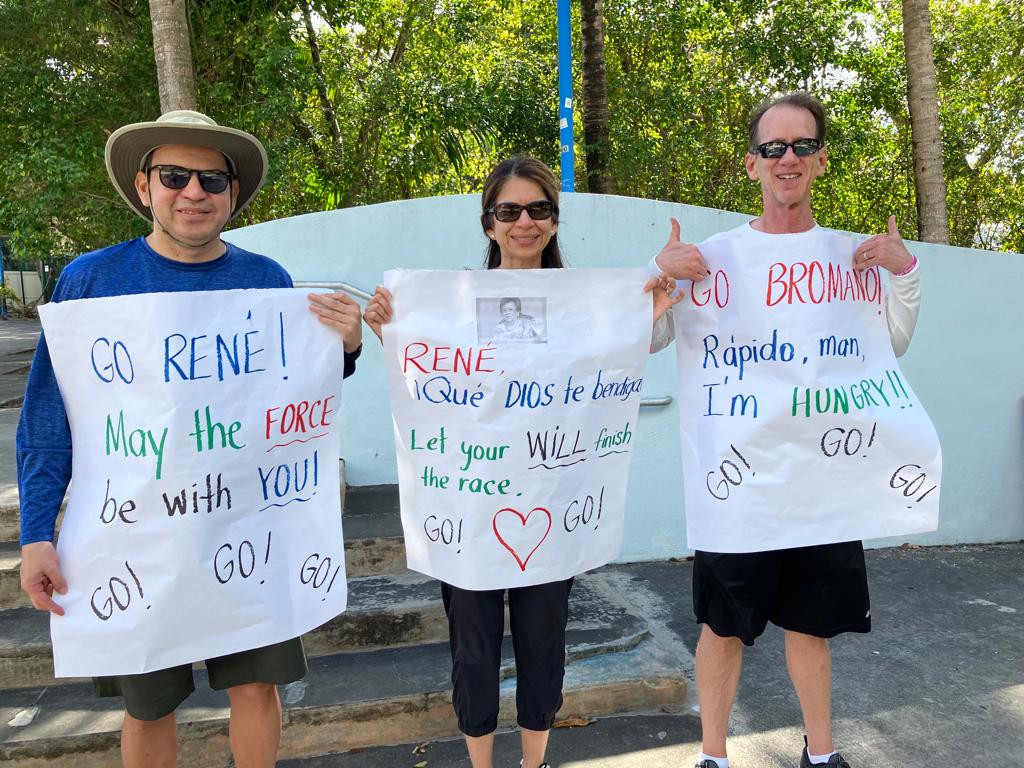 GO RENÉ!
May the FORCE
be with YOU!
GO! GO! GO!
RENÉ,
¡Qué DIOS te bendiga
Let your WILL finish
the race.
GO! GO!
GO BROMANO!
Rápido, man,
I'm HUNGRY!!
GO! GO! GO!